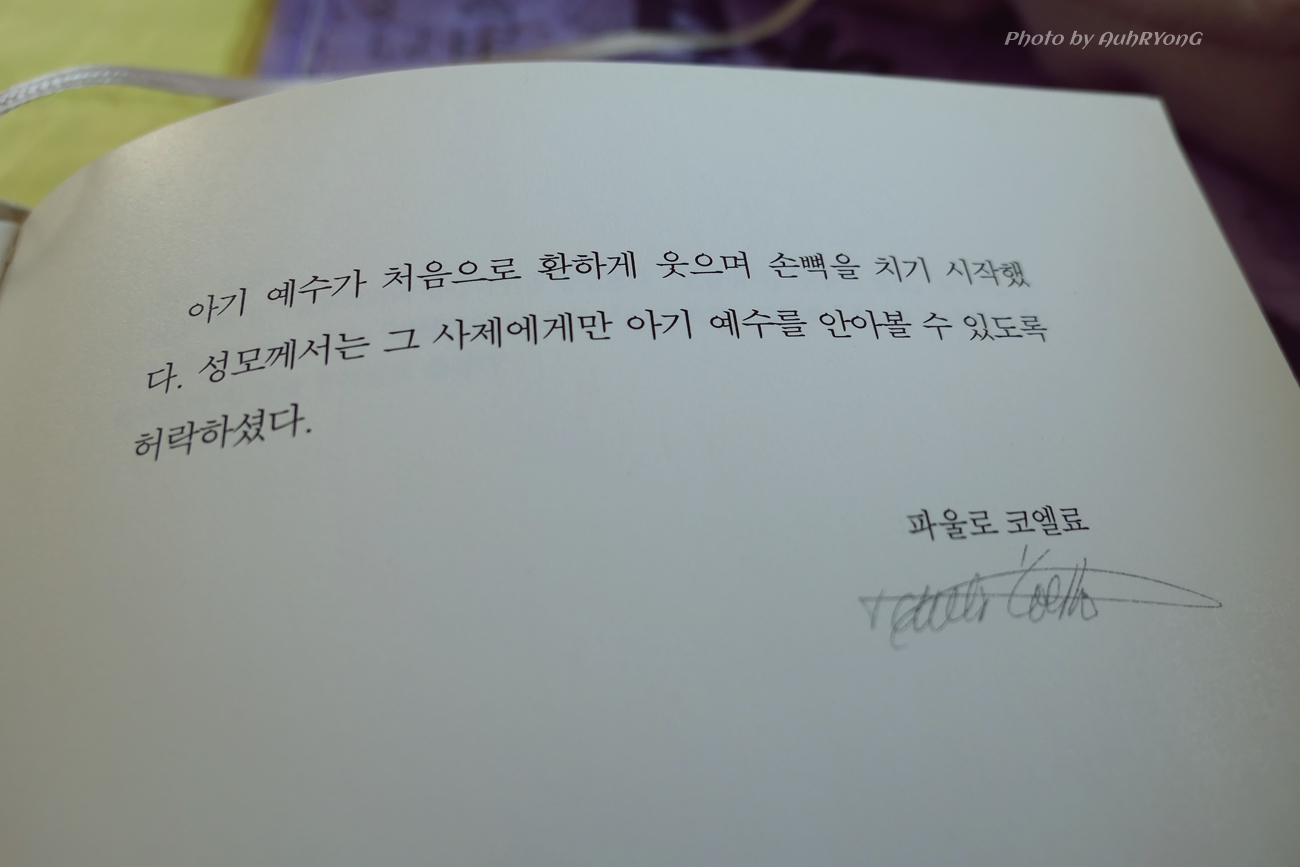 Photo by AuhRYonG
아기 예수가 처음으로 환하게 웃으며 손뼉을 치기 시작했
다. 성모께서는 그 사제에게만 아기 예수를 안아볼 수 있도록
허락하셨다.
파울로 코엘료
Paulo Coelho